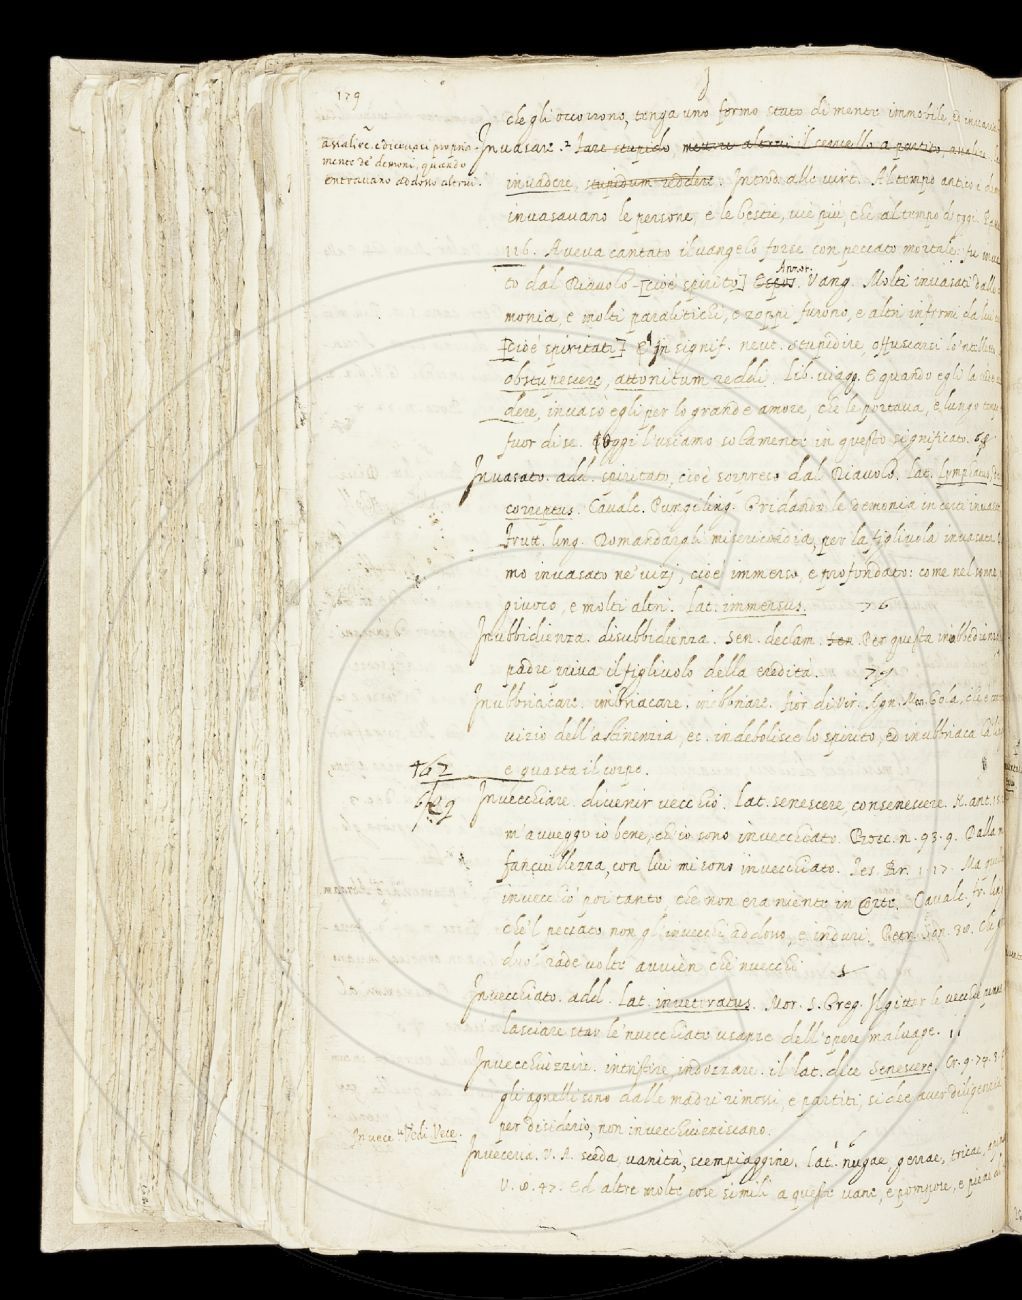 179
che gli occorrono, tenga uno fermo stato di mente immobile, ed
assalire, e dicevasi propria-
mente de' demonj, quando
entravano addosso altrui.
Invasare. Fare stupido, mettere altrui il cervello a partito, assalire
invadere, stupidum reddere. Introd. alle virt. Al tempo antico i
invasavano le persone, e le bestie, vie più, che al tempo di oggi.
116. Aveva cantato il vangelo forse con peccato mortale: fu
to dal Diavolo [cioè spirito] Espos. Annot. Vang. Molti invasati dalle
monia, e molti paralitichi, e zoppi furono, e altri infermi da lui
[cioè spiritati] E in signif. neut. stupidire, offuscarsi lo 'ntelletto
obstupescere, attonitum reddi. Lib. viagg. E quando egli la
dere, invasò egli per lo grande amore, che le portava, e lungo
fuor di se. Oggi l'usiamo solamente in questo significato. 68
Invasato. add. spiritato, cioè sorpreso dal Diavolo. Lat. Lymphatus,
correptus. Cavalc. Pungiling. Gridando le demonia in certi
Frutt. ling. Domandargli misericordia, per la figliuola invasata
mo invasato ne' vizj, cioè immerso, e profondato: come nel sonno,
giuoco, e molti altri. Lat. immersus. 76
Inubbidienza. disubbidienza. Sen. declam. Sen. Per questa
padre priva il figliuolo della eredità. 79
Inubbriacare. imbriacare. inebbriare. Fior. di Vir. Gola, che è
vizio dell'astinenzia, ec. indebolisce lo spirito, ed inubbriaca
e guasta il corpo.
+62
Invecchiare. divenir vecchio. Lat. senescere, consenescere. N. ant.
m'avveggo io bene, ch'io sono invecchiato. Bocc. n. 93. 9. Dalla
fanciullezza, con lui mi sono invecchiato. Tes. Br. 1. 17. Ma
invecchiò poi tanto, che non era niente in Corte. Cavalc. fr. ling.
che 'l peccato non gl'invecchi addosso, e induri. Petr. Son. 30. Che
duol rade volte avvien che 'nvecchi
Invecchiato. add. Lat. inveteratus. Mor. S. Greg. Il gittar le vecchie
lasciare star le 'nvecchiate usanze dell'opere malvage. 11
Invecchiuzzire. intristire, indozzare. il lat. dice Senescere. Cr. 9. 74. 3.
gli agnelli sono dalle madri rimossi, e partiti, si dee aver diligenzia
per desiderio, non invecchiuzziscano.
Invece Vedi Vece.
Invecería. V. A. sceda, vanità, scempiaggine. Lat. nugae, gerrae, tricae,
V. 8. 47. Ed altre molte cose simili a queste vane, e pompose, e piene